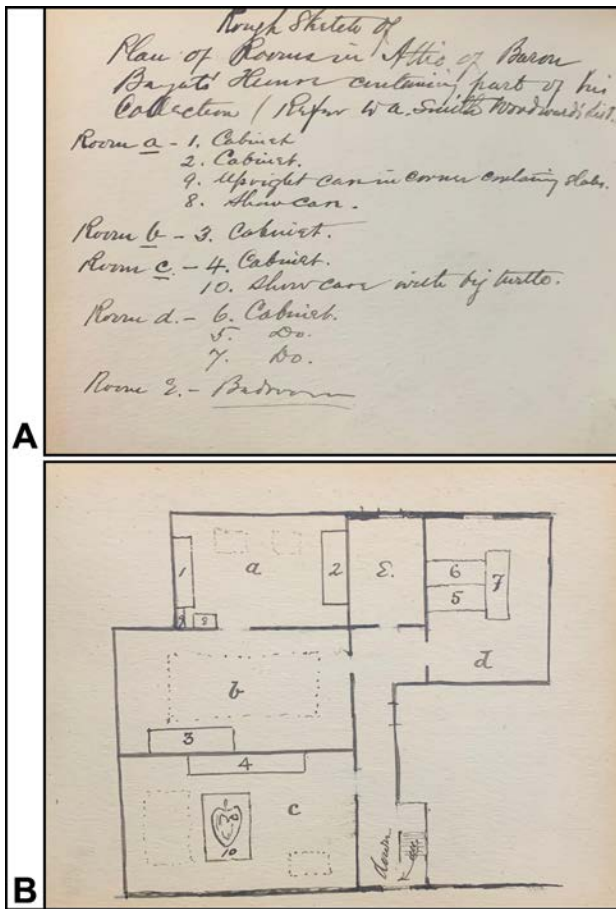 Rough Sketch of
Plan of Rooms in Attic of Baron
Bayets' House containing part of his
Collection (Refer to A. Smith Woodward's list.
Room a - 1. Cabinet
2. Cabinet.
9. Upright case in corner containing slabs.
8. Show case.
Room b - 3. Cabinet.
Room c. - 4. Cabinet.
10. Show case with big turtle.
Room d. - 6. Cabinet.
5. Do.
7. Do.
Room E. - Bedroom
A
1
a
2
E.
6
7
5
9
8
d
b
3
4
c
10
Down
B